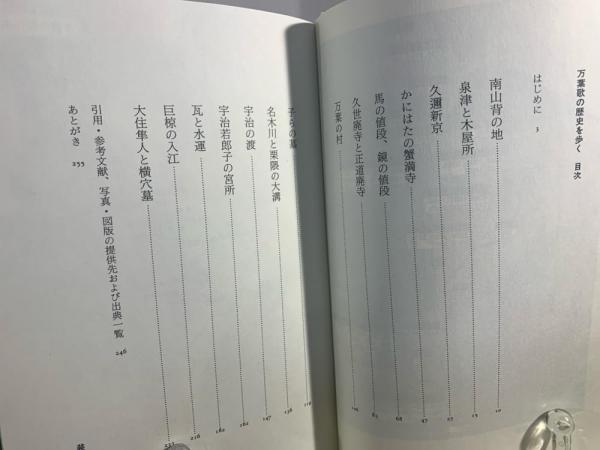 万葉歌の歴史を歩く 目次
はじめに 3
南山背の地 10
泉津と木屋所 13
久邇新京 27
かにはたの蟹満寺 47
馬の値段、鏡の値段 68
久世廃寺と正道廃寺 83
万葉の村
子らの墓 119
名木川と栗隈の大溝 136
宇治の渡 147
宇治若郎子の宮所 162
瓦と水運
巨椋の入江
大住隼人と横穴墓
引用・参考文献、写真・図版の提供先および出典一覧 246
あとがき 255
装